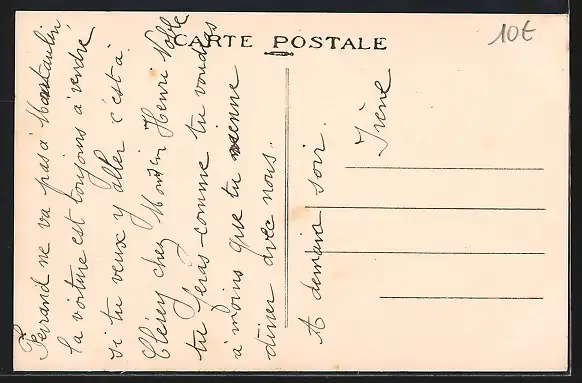 CARTE POSTALE
10€
Ferrand ne va pas à Montaulin
la voiture est toujours à vendre
si tu veux y aller c'est à
Clérey chez Monsieur Henri Noble
tu feras comme tu voudras
à moins que tu vienne
diner avec nous.
A demain soir.
Irène